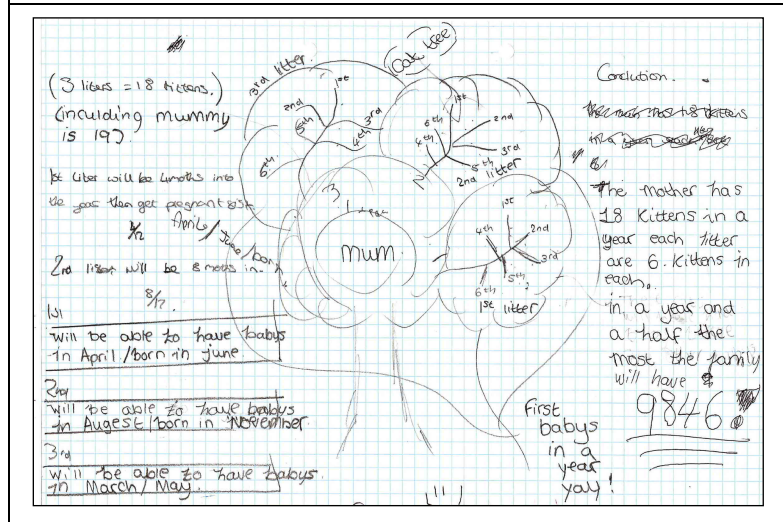 (3 liters = 18 kittens.)
(inculding mummy
is 19).
1st liter will be 4moths into
the year then get pregnant
4/12
Aprile/June/born
2nd liter will be 8 moths in.
8/12
1st
will be able to have babys
in April/born in june.
2nd
will be able to have babys
in Augest/born in November
3rd
will be able to have babys.
in March/May.
Oak tree
3rd litter.
1st
2nd
3rd
4th
5th
6th
1st
2nd
3rd
4th
5th
6th
2nd litter
mum
1st
2nd
3rd
4th
5th
6th
1st litter
First
babys
in a
year
yay!
Conclution.
The mother has
18 kittens in a
year each litter
are 6. kittens in
each.
in a year and
a half the
most the family
will have
9846.